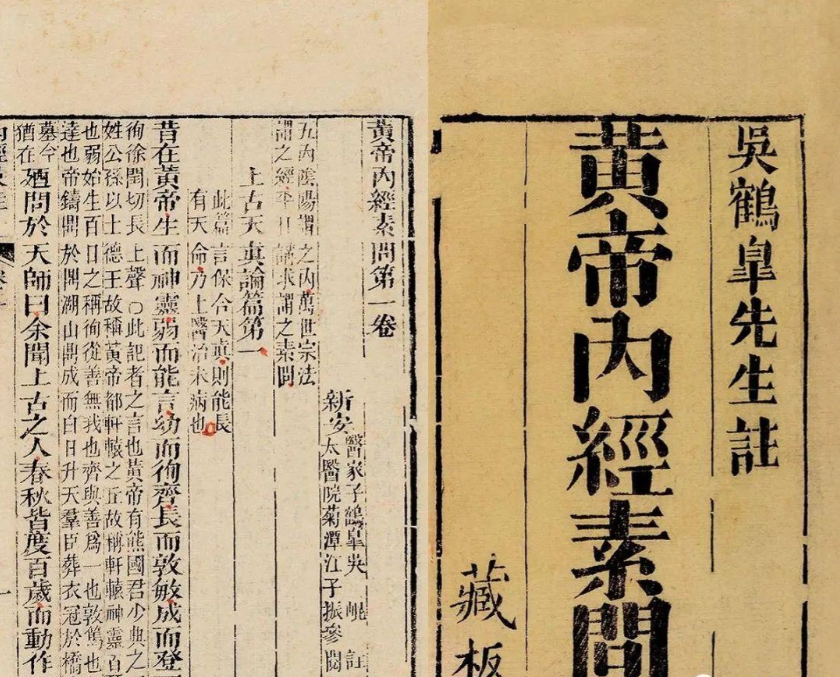 吳鶴皐先生註
黃帝內經素問
藏板
黃帝內經素問第一卷
新安
醫家子鶴皐吳崐註
太醫院菊潭江子振參閱
五內陰陽謂之內萬世宗法
謂之經平日講求謂之素問
上古天真論篇第一
此篇言保合天真則能長
有天命乃上醫治未病也
昔在黃帝生而神靈弱而能言幼而徇齊長而敦敏成而登
徇徐閏切長上聲○此記者之言也黃帝有熊國君少典之
姓公孫以土德王故稱黃帝都軒轅之丘故稱軒轅神靈百
也弱始生百日之稱徇從善無我也齊與善爲一也敦篤也
達也帝鑄鼎於鼎湖山鼎成而白日升天羣臣葬衣冠於橋
墓今
猶在
廼問於天師曰余聞上古之人春秋皆度百歲而動作